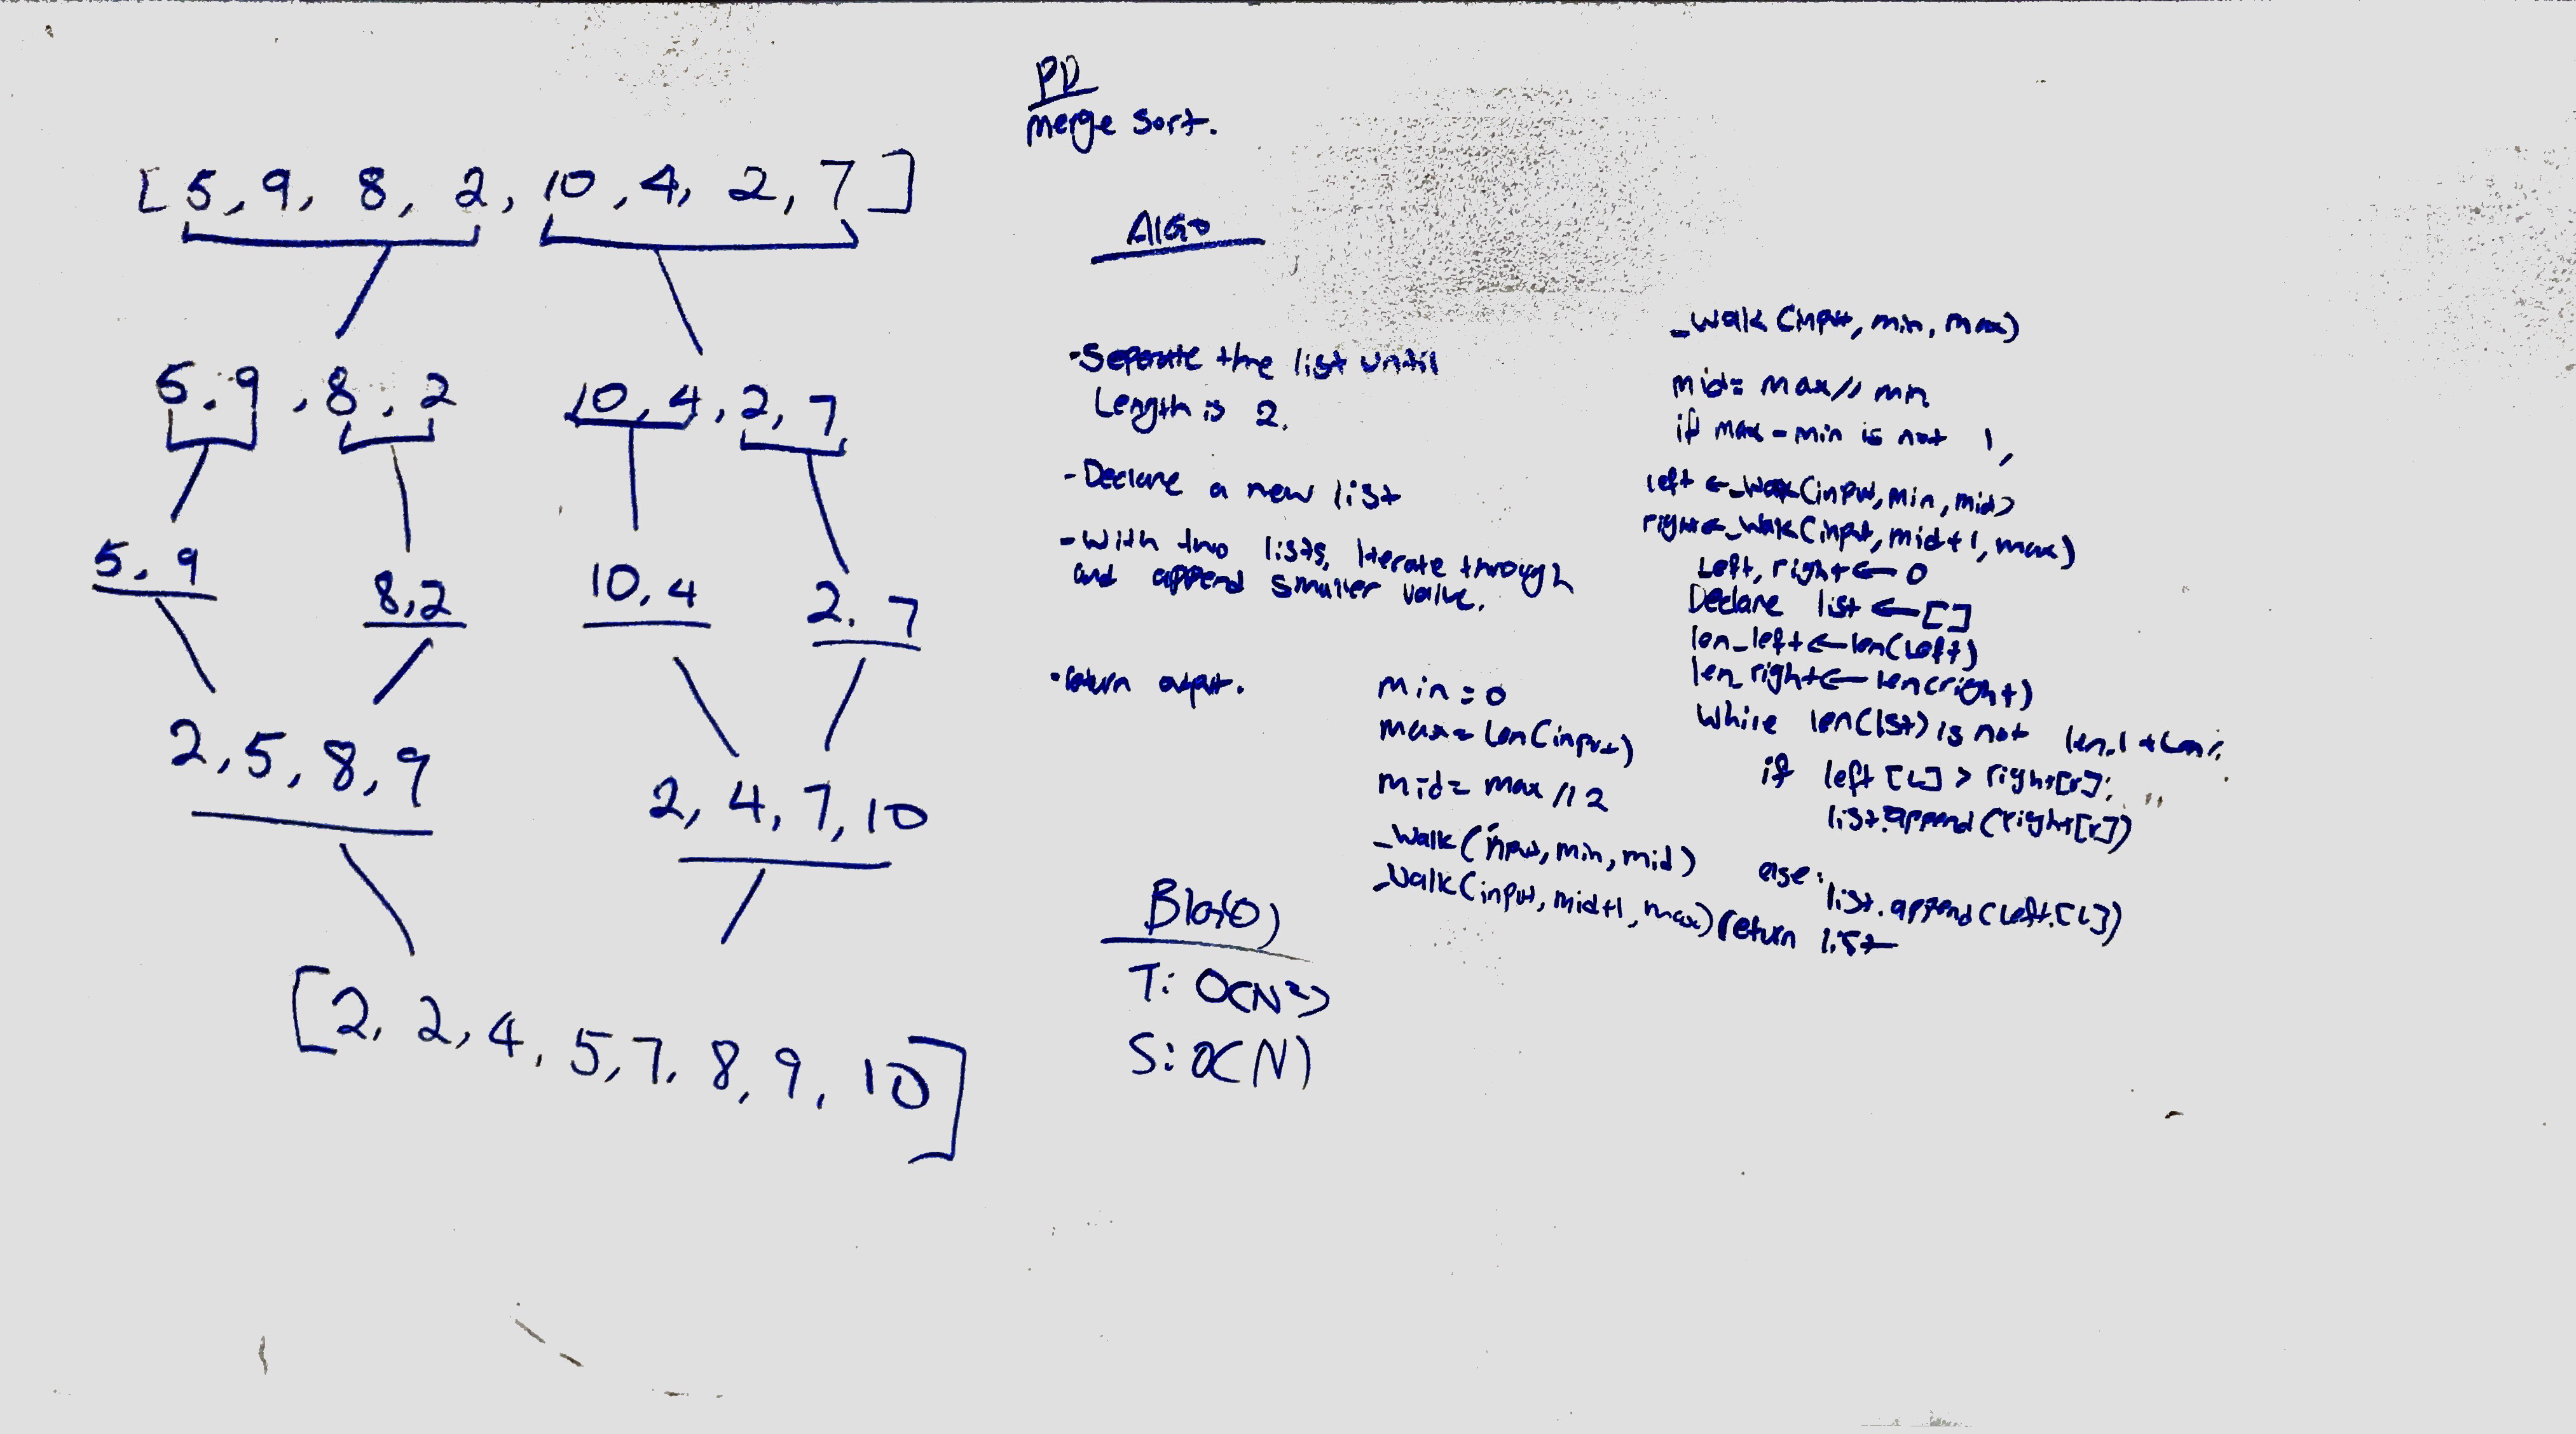 [5, 9, 8, 2, 10, 4, 2, 7]
5, 9, 8, 2
10, 4, 2, 7
5, 9
8, 2
10, 4
2, 7
2, 5, 8, 9
2, 4, 7, 10
[2, 2, 4, 5, 7, 8, 9, 10]
PD
merge sort.
AlGo
-Separate the list until
Length is 2.
-Declare a new list
-With two lists, Iterate through
and append smaller value.
-return output.
min = 0
max = Len(input)
mid = max // 2
_walk(input, min, mid)
_walk(input, mid+1, max)
BIG(O)
T: O(N²)
S: O(N)
_walk(input, min, max)
mid = max // min
if max - min is not 1,
left ← _walk(input, min, mid)
right ← _walk(input, mid+1, max)
Left, right ← 0
Declare list ← []
len_left ← len(Left)
len_right ← len(right)
While len(lst) is not
if left[L] > right[r]:
list.append(right[r])
else:
list.append(left[L])
return list